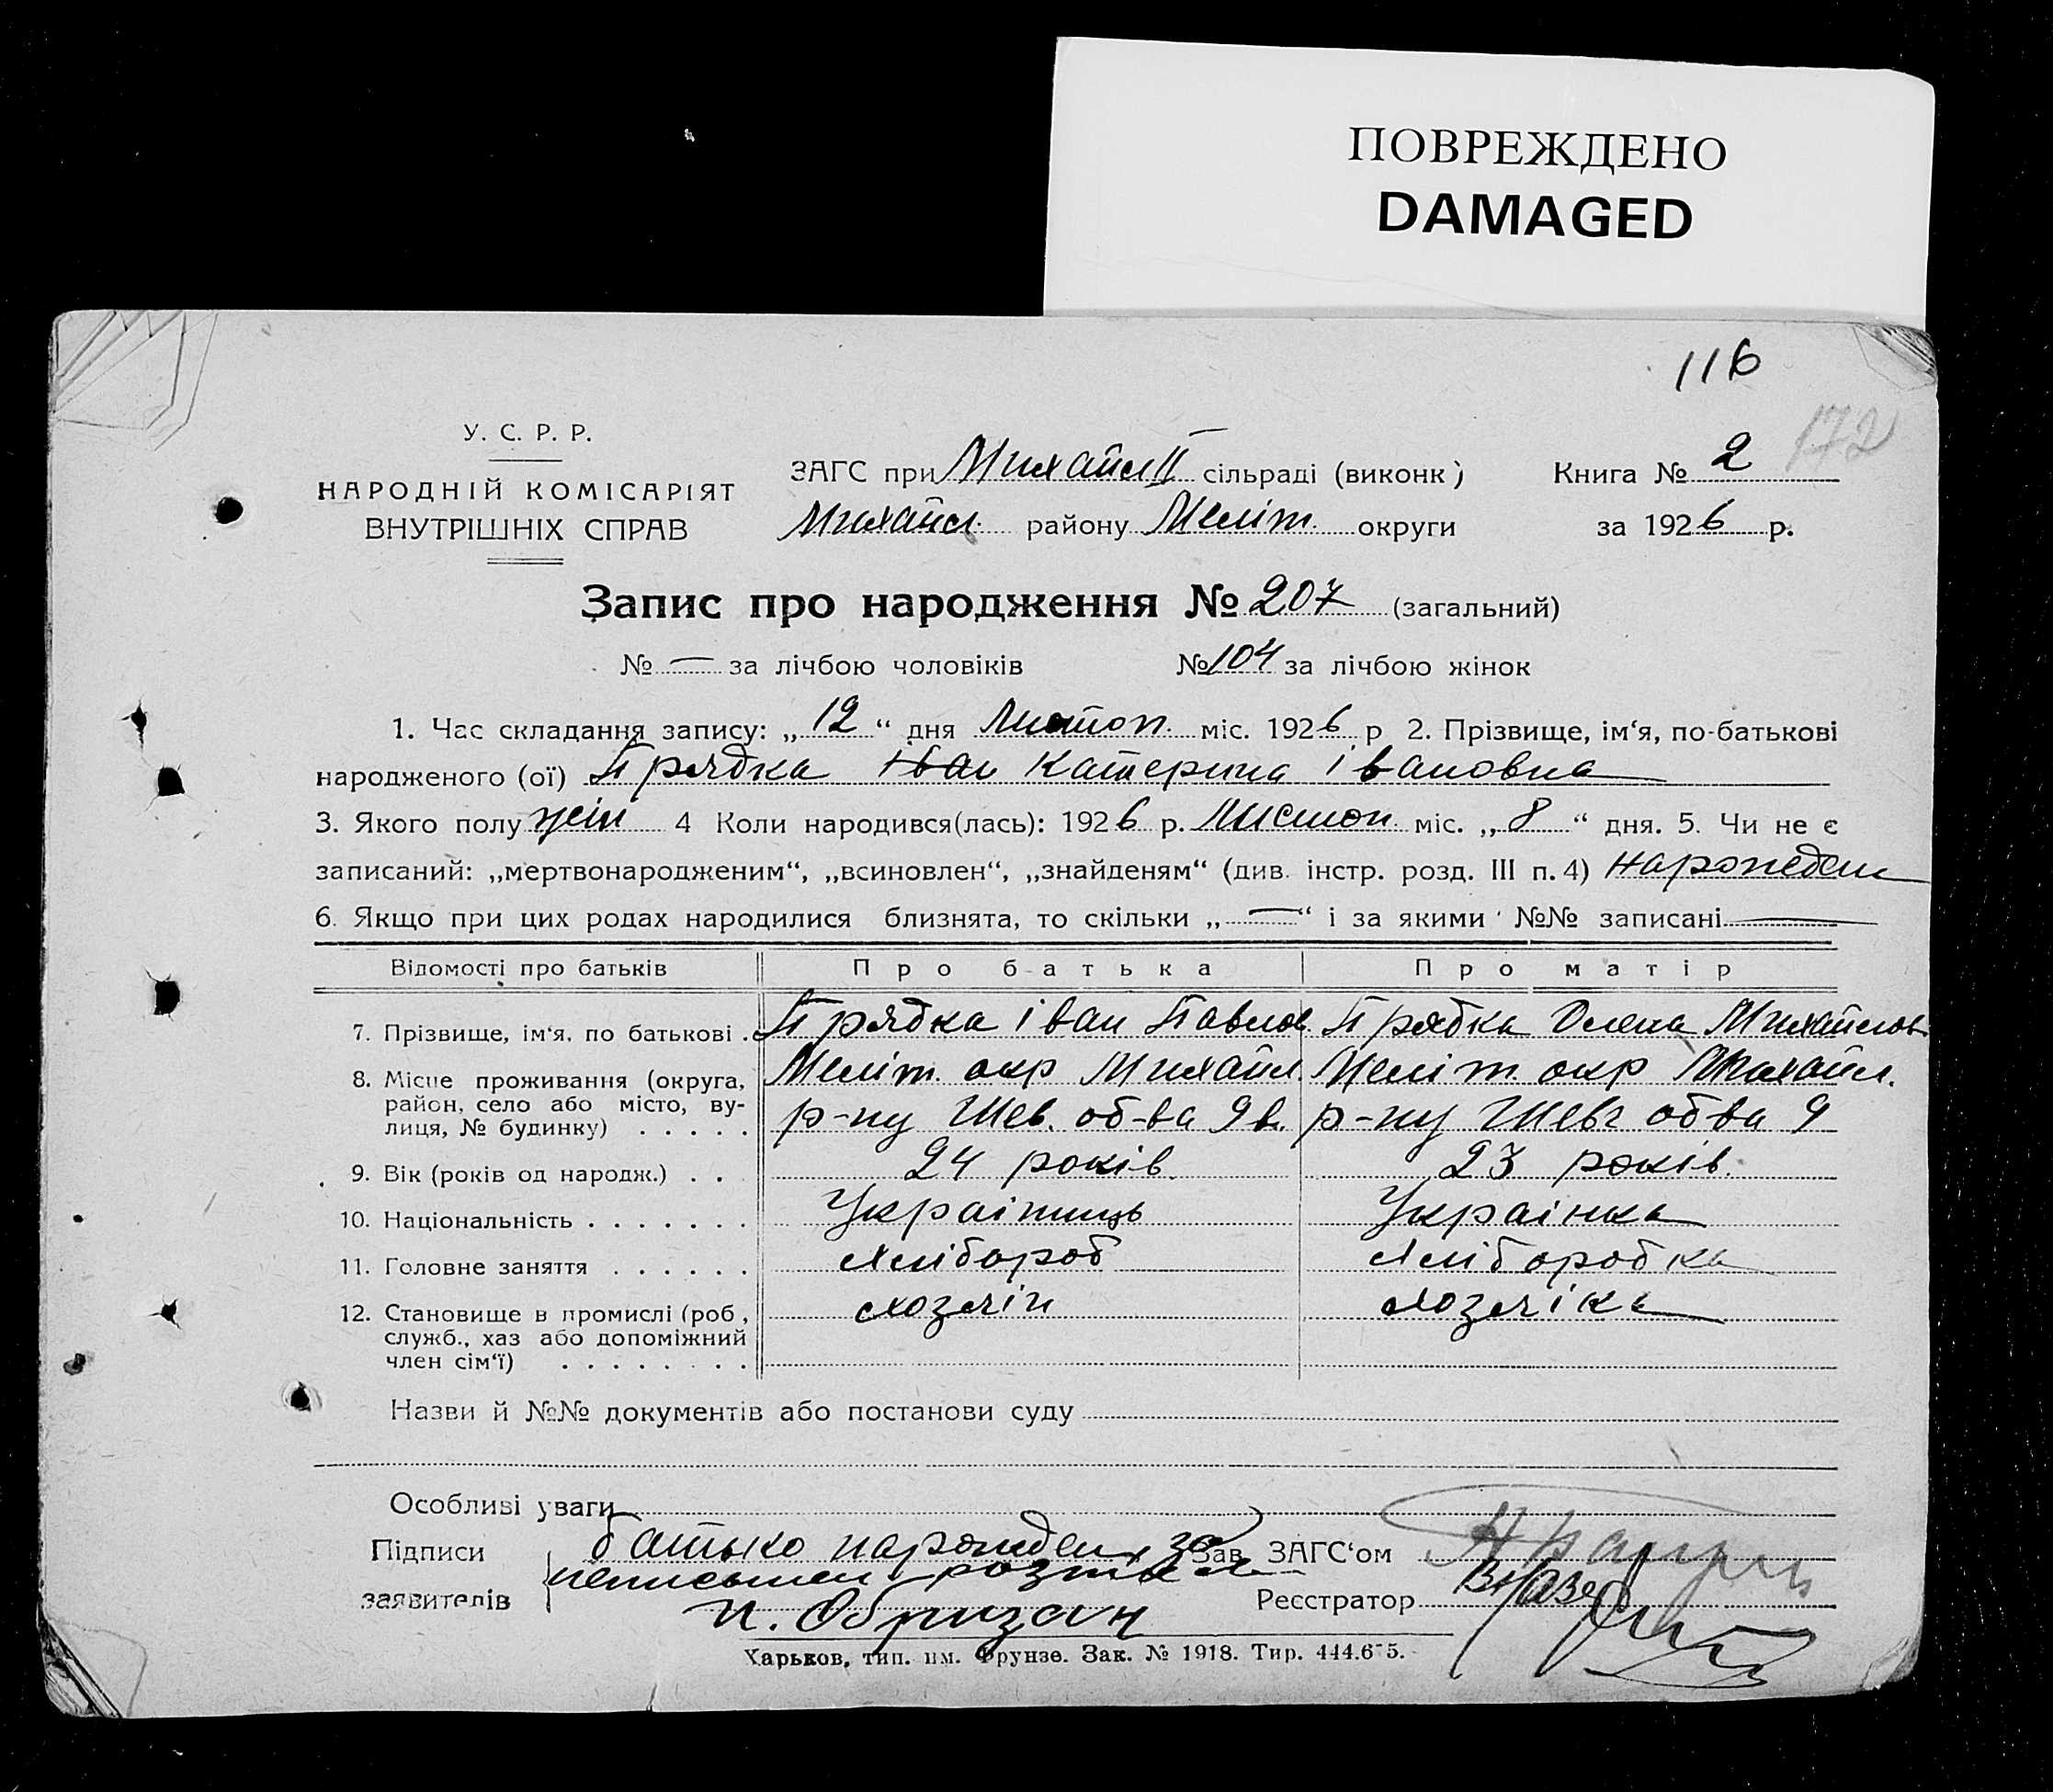 ПОВРЕЖДЕНО
DAMAGED
116
172
У. С. Р. Р.
НАРОДНІЙ КОМІСАРІЯТ
ВНУТРІШНІХ СПРАВ
ЗАГС при Михайл II сільраді (виконк)
Михайл. району Меліт. округи
Книга № 2
за 1926 р.
Запис про народження № 207 (загальний)
№ — за лічбою чоловіків № 104 за лічбою жінок
1. Час складання запису: „12“ дня Листоп. міс. 1926 р 2. Прізвище, ім‘я, по-батькові
народженого (ої) Прядка Іван Катерина Івановна
3. Якого полу жін 4 Коли народився(лась): 1926 р. Листоп. міс. „8“ дня. 5. Чи не є
записаний: „мертвонародженим“, „всиновлен“, „знайденям“ (див. інстр. розд. III п. 4) народжден
6. Якщо при цих родах народилися близнята, то скільки „—“ і за якими №№ записані —
Відомості про батьків Про батька Про матір
7. Прізвище, ім‘я, по батькові . Прядка Іван Павлов. Прядка Олена Михайлов
8. Місце проживання (округа, Меліт. окр Михайл. Меліт. окр Михайл.
район, село або місто, ву-
лиця, № будинку) . . . . . р-ну Шев. об-ва 9 в. р-ну Шевч об-ва 9
9. Вік (років од народж.) . . 24 років. 23 років.
10. Національність . . . . . . . Українць Українка
11. Головне заняття . . . . . . Хлібороб Хліборобка
12. Становище в промислі (роб, хозяїн хозяїка
служб., хаз або допоміжний
член сім‘ї) . . . . . . . .
Назви й №№ документів або постанови суду
Особливі уваги
Підписи батько нарожден, за Зав. ЗАГС‘ом
неписьмен
заявителів Реєстратор
Харьков, тип. им. Фрунзе. Зак. № 1918. Тир. 444.675.